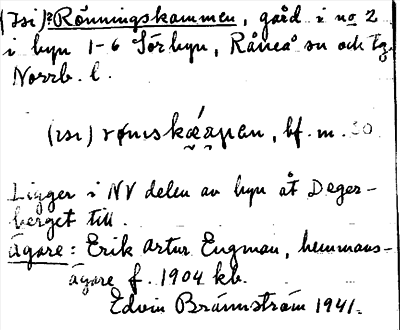 (Isi)? Rönningskammen, gård i no 2
i byn 1-6 Sörbyn, Råneå sn och tg.
Norrb. l.
bf. m. 30
Ligger i NV delen av byn åt Deger-
berget till.
Ägare: Erik Artur Engman, hemmans-
ägare f. 1904 kb.
Edvin Brännström 1941.